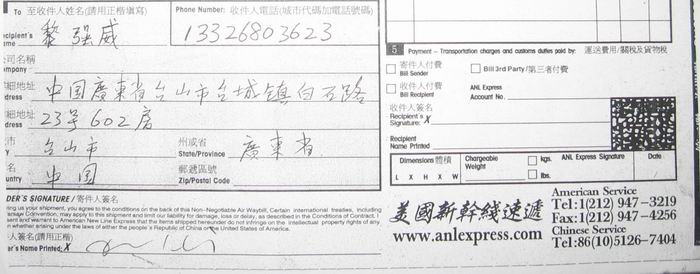 To 至收件人姓名(請用正楷填寫)
Phone Number: 收件人電話(城市代碼加電話號碼)
ecipient's
ame
黎强威
13326803623
公司名稱
ompany
細地址
dress
中国廣東省台山市台城镇白石路
細地址
dress
23号602房
市
y
台山市
州或省
State/Province
廣東省
名
y
中国
郵遞區號
Zip/Postal Code
DER'S SIGNATURE / 寄件人簽名
ng us your shipment, you agree to the conditions on the back of this Non-Negotiable Air Waybill, Certain international treaties, including
arsaw Convention, may apply to this shipment and limit our liability for damage, loss or delay, as described in the Conditions of Contract. I
sent and warrant to American New Line Express that the items shipped hereunder do not infringe on the intellectual property rights of any
n whether arising under the laws of either the people's Republic of China or the United States of America.
人簽名(請用正楷)
er's Name Printed: X
5 Payment – Transportation charges and customs duties paid by: 運送費用/關稅及貨物稅
寄件人付費
Bill Sender
Bill 3rd Party/第三者付費
收件人付費
Bill Recipient
ANL Express
Account No.
收件人簽名
Recipient's
Signature: X
Recipient
Name Printed
Dimensions 體積
L X H X W
Chargeable
Weight
kgs.
lbs.
ANL Express Signature
Date
/
美國新幹綫速遞
www.anlexpress.com
American Service
Tel:1(212) 947-3219
Fax:1(212) 947-4256
Chinese Service
Tel:86(10)5126-7404